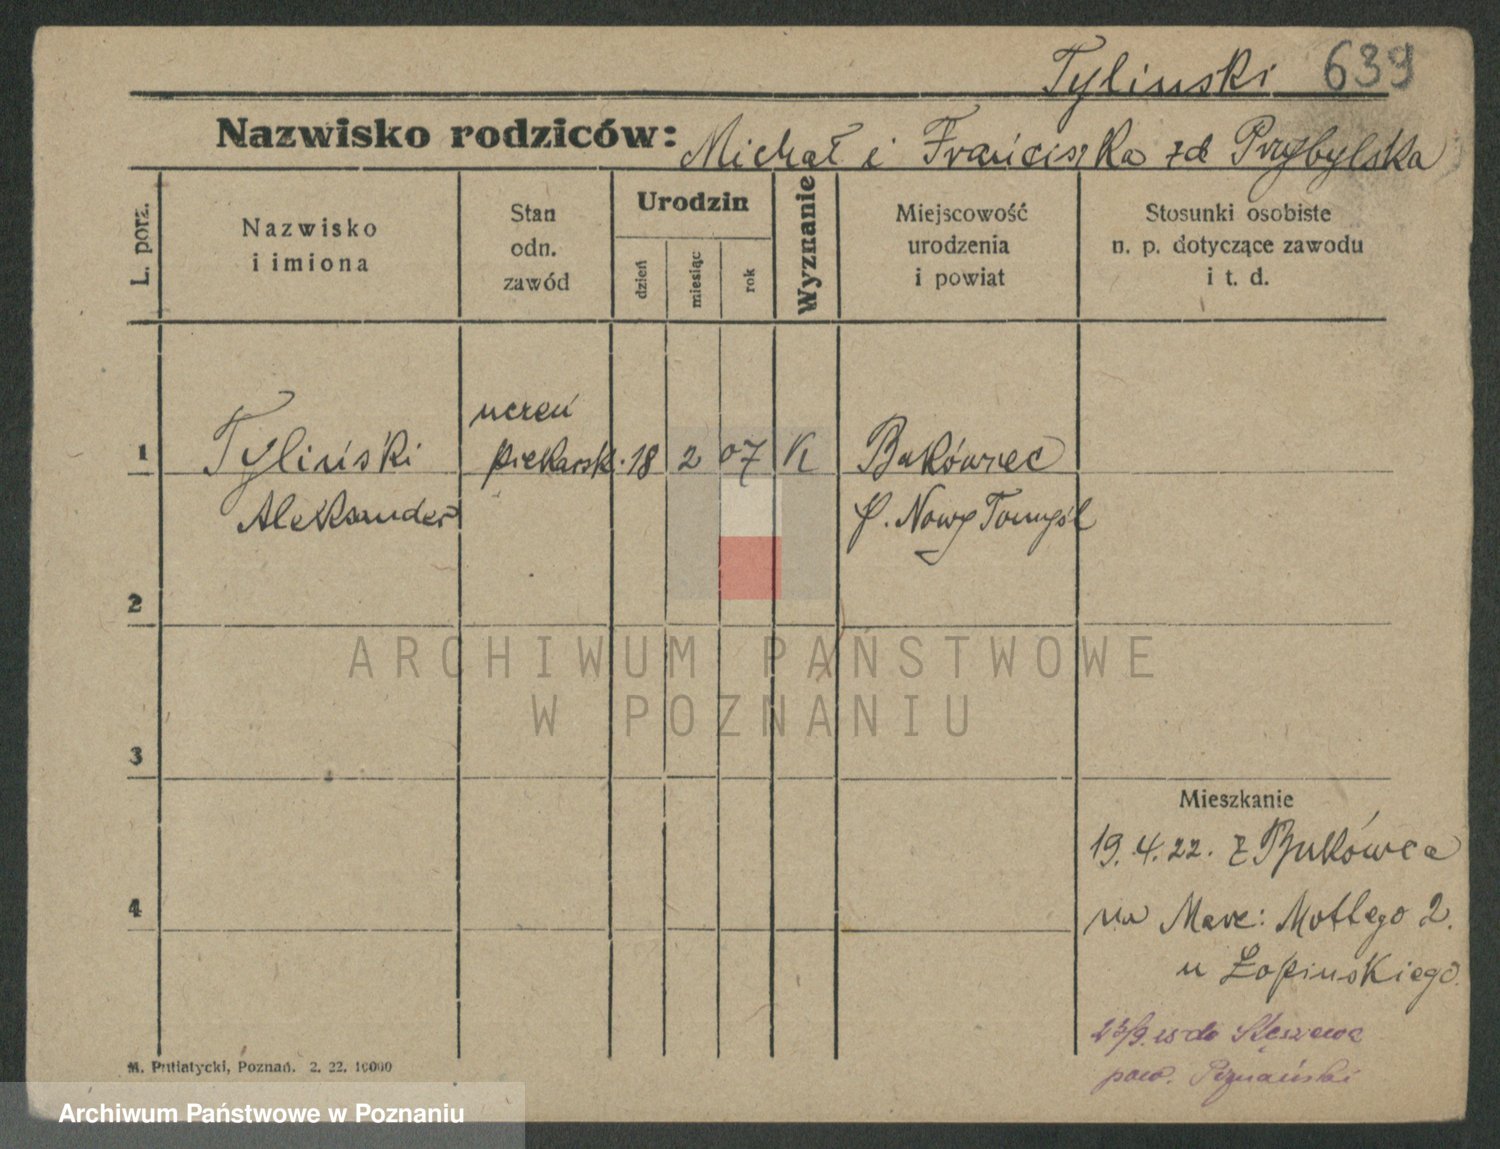 Tylinski 639
Nazwisko rodziców: Michał i Franciszka zd Przybylska
L. porz.
Nazwisko
i imiona
Stan
odn.
zawód
Urodzin
dzień
miesiąc
rok
Wyznanie
Miejscowość
urodzenia
i powiat
Stosunki osobiste
n. p. dotyczące zawodu
i t. d.
1 Tyliński uczeń piekarsk. 18 2 07 K Bukówiec
Aleksander p. Nowy Tomyśl
2
ARCHIWUM PAŃSTWOWE
W POZNANIU
3
Mieszkanie
19.4.22. z Bukówca
4
na Marc: Mottego 2.
u Łopinskiego.
do Stęszewa
pow. Poznański
M. Putiatycki, Poznań. 2. 22. 10000
Archiwum Państwowe w Poznaniu